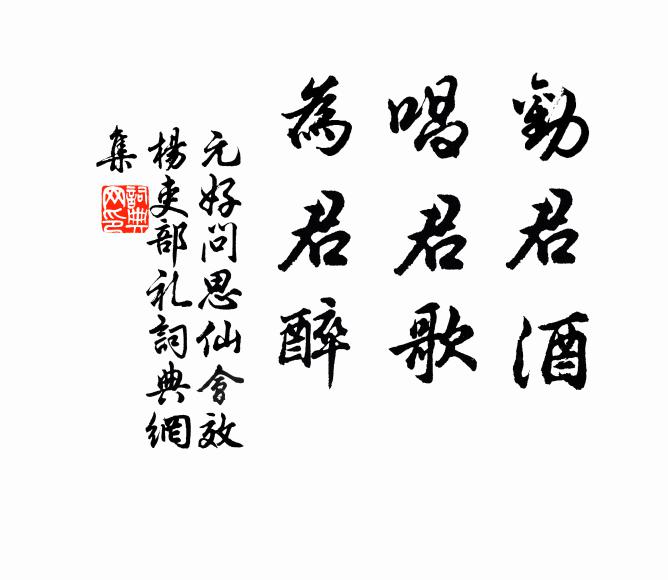 勸君酒
唱君歌
為君醉
元好問思仙會效
楊吏部礼詞典網
集
詞典网印